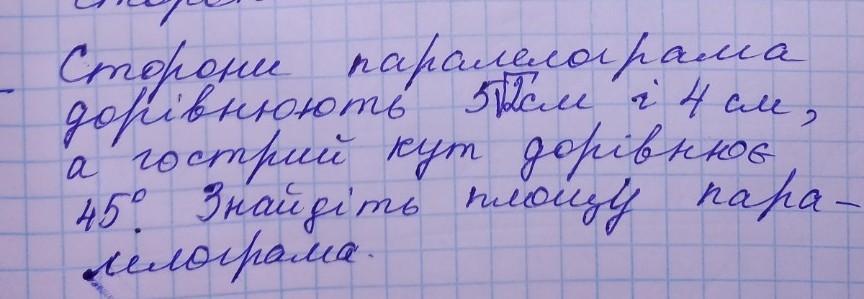 Сторони паралелограма
дорівнюють 5√2см і 4 см,
а гострий кут дорівнює
45°. Знайдіть площу пара-
лелограма.